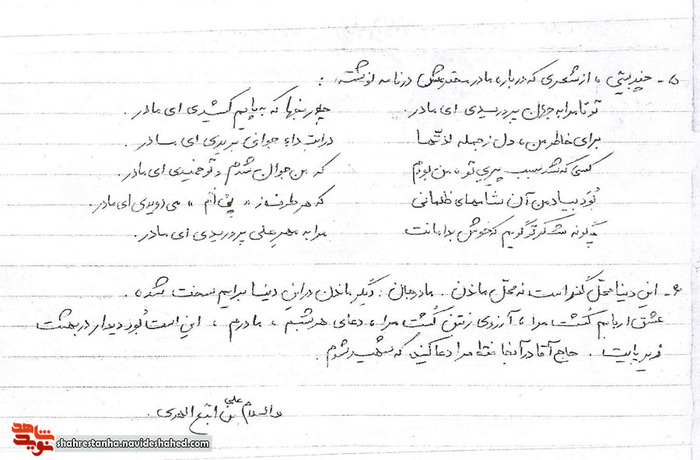 ۵- چند بیتی، از شعری که درباره مادر محترمش در نامه نوشته:
تو تا مرا به جهان پروریدی ای مادر. چه رنجها که به پایم کشیدی ای مادر.
برای خاطر من، دل ز جمله لذتها در ایام جوانی بریدی ای مادر.
کسی که شد سبب پیری تو، من بودم که من جوان شدم و تو خمیدی ای مادر.
بُوَد بیاد من آن شامهای ظلمانی که هر طرف ز « » می دویدی ای مادر.
چگونه شکر تو گویم که خوش بدامانت مرا به مهر علی پروریدی ای مادر.
۶- این دنیا محل گذر است نه محل ماندن. مادر جان: دیگر ماندن در این دنیا برایم سخت شده.
عشق اربابم کُشت مرا، آرزوی رفتن کُشت مرا، دعای هر شبم، مادرم، این است بُوَد دیدار در بهشت
زیر پایت. حاج آقا در آنجا فقط مرا دعا کنید که شهید شوم.
والسلام علی من اتبع الهدی.
شاهد
نوید
shahrestanha.navideshahed.com